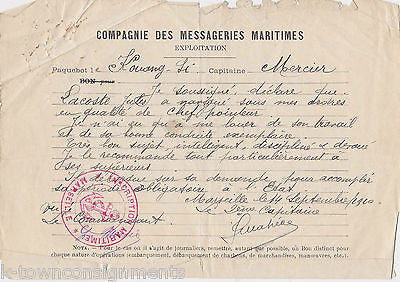 COMPAGNIE DES MESSAGERIES MARITIMES
EXPLOITATION
Paquebot le Kouang Si Capitaine Mercier
BON pour
Je soussigné, déclare que
Lacoste Jules a navigué sous mes ordres
en qualité de Chef pointeur
Je n'ai eu qu'à me louer de son travail
et de sa bonne conduite exemplaire.
Très bon sujet intelligent, discipliné & dévoué
Je le recommande tout particulièrement à
ses supérieurs
Il débarque sur sa demande, pour accomplir
sa période obligatoire à l'Etat
Marseille le 14 Septembre
Vu
Le Commandant
Le 2ème Capitaine
INSCRIPTION MARITIME
MARSEILLE
NOTA. — Pour le cas où il s'agit de journaliers, remettre, autant que possible, un Bon distinct pour
chaque nature d'opérations (embarquement, débarquement de charbons, de marchandises, manœuvres, etc.)
k-townconsignments